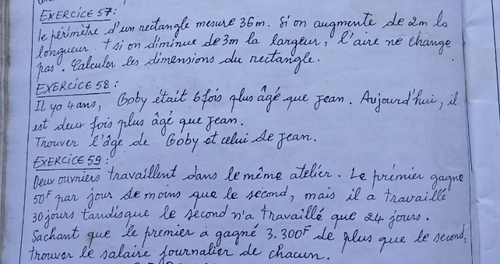 EXERCICE 57:
le périmètre d'un rectangle mesure 36m. Si on augmente de 2m la
longueur + si on diminue de 3m la largeur, l'aire ne change
pas. Calculer les dimensions du rectangle.
EXERCICE 58:
Il ya 4 ans, Goby était 6 fois plus âgé que Jean. Aujourd'hui, il
est deux fois plus âgé que Jean.
Trouver l'âge de Goby et celui de Jean.
EXERCICE 59:
Deux ouvriers travaillent dans le même atelier. Le prémier gagne
50F par jour de moins que le second, mais il a travaillé
30 jours tandisque le second n'a travaillé que 24 jours.
Sachant que le premier à gagné 3.300F de plus que le second,
trouver le salaire journalier de chacun.